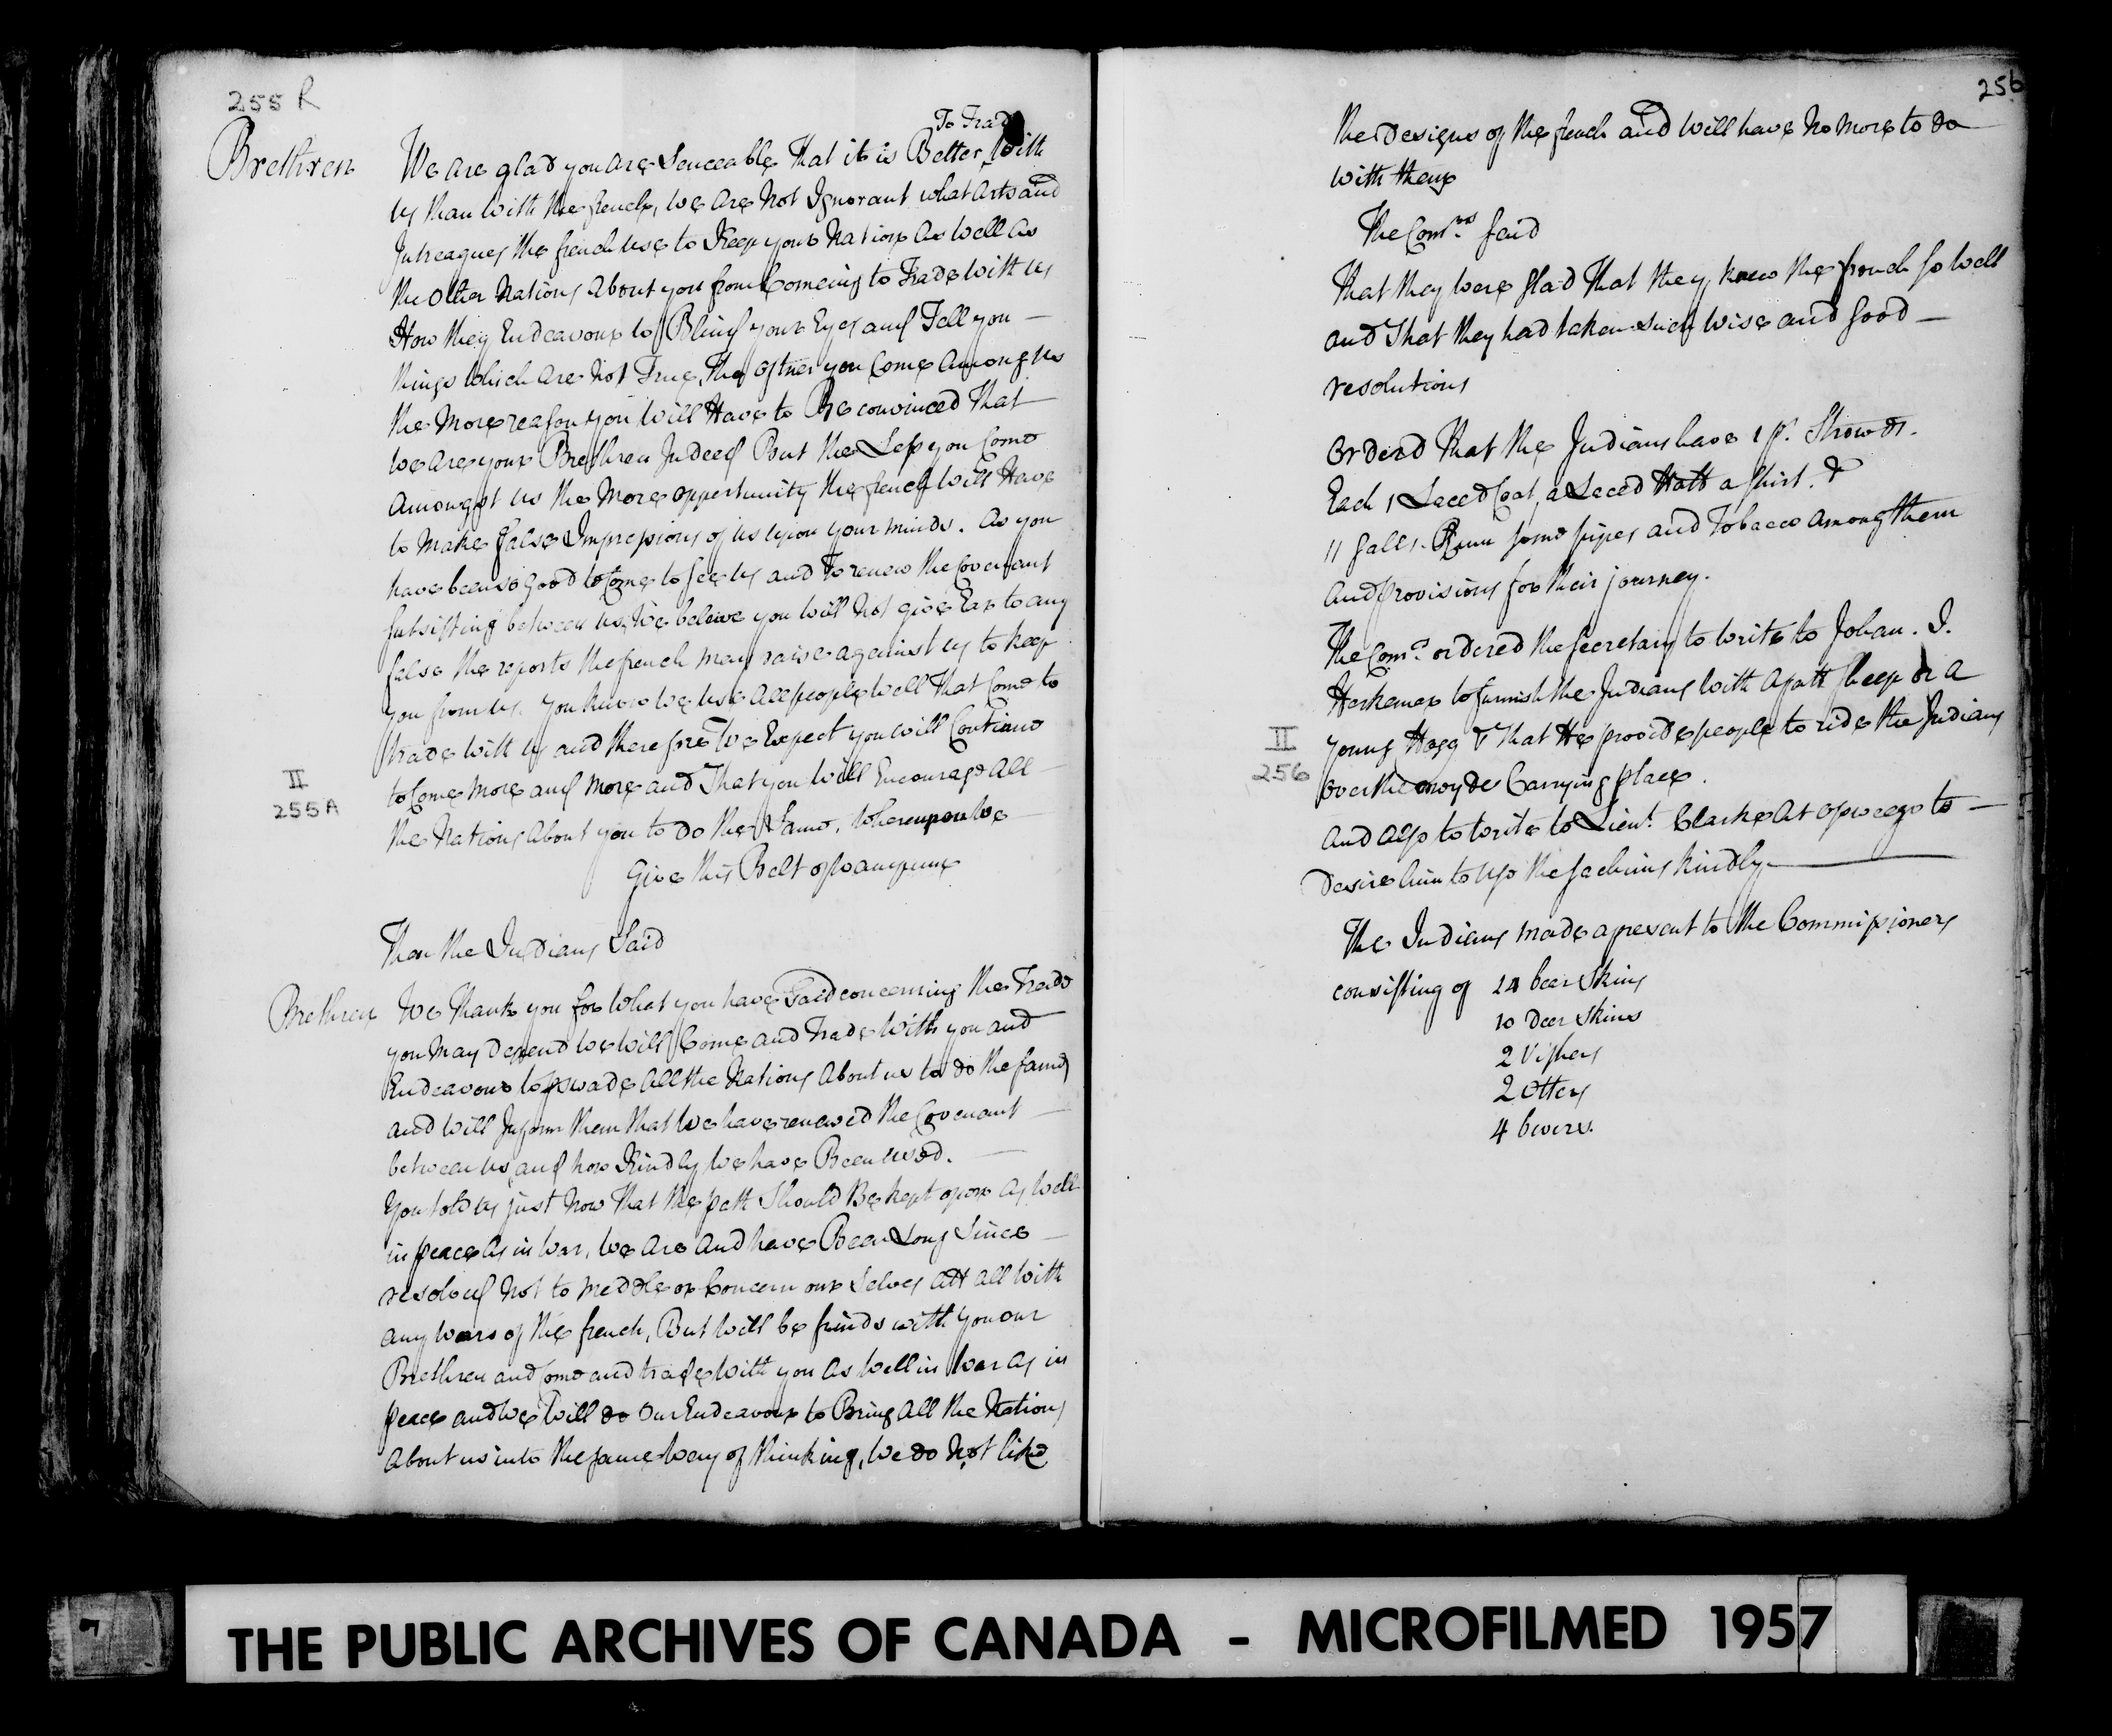 255 R
To Trade
Brethren We Are glad you Are Senceable That it is Better With
us than With the french, We Are Not Ignorant what Arts and
Intreagues the french use to Keep your Nation As Well As
the Other Nations About you from Comeing to Trade With us
How they Endeavour to Blind your Eyes and Tell you
things Which Are Not True, The oftner you Come Among us
the More reason you Will Have to Be convinced That
We Are your Brethren Indeed But the Less you Come
Amongst us the More opportunity the french Will Have
to Make false Impressions of us upon your minds. As you
have been so good to Come to see us and To renew the Covenant
subsisting between us, We beleive you Will Not give Ear to any
false the reports the french may raise against us to keep
you from us. You know We use All people Well That Come to
trade With us and therefore We Expect you Will Contiane
to Come More and More and That you Will Encourage All
the Nations About you to do the Same, Whereupon We
Give this Belt of Wampum
II
255A
Then the Indians Said
Brethren We Thank you for What you have Said concerning the Trade
you May Depend We Will Come and Trade With you and
Endeavour to pswade All the Nations About us to do the same
and Will Inform them That We have renewed the Covenant
between us and how Kindly We have Been used.
You told us just Now That the path Should Be kept open As Well
in peace As in War, We Are And have Been Long Since
resolved Not to Meddle or Concern our Selves Att All With
any Wars of the french, But Will be frinds with you our
Brethren and Come and trade With you As Well in War As in
peace and We Will do Our Endeavour to Bring All the Nations
About us into the same Way of thinking, We do Not like
256
the Designs of the french and Will have No More to do
With them
The Comrs. Said
That they Were glad That they knew the french so Well
and That they had taken such Wise and good
resolutions
Ordered That the Indians have 1 ps. Strowds.
Each 1 Laced Coat, a Laced Hatt a shirt. &
11 galls. Rum some pipes and Tobacco Among them
And provisions for their journey.
The Comrs. ordered the secretary to Write to Johan. J.
Herkemer to furnish the Indians With A fatt sheep or A
young Hogg & That He provide people to ride the Indians
over the Carrying place.
II
256
And Also to Write to Lieut. Clarke At Osweego to
Desire him to use the sachims kindly
The Indians made a present to the Commissioners
consisting of 24 beer Skins
10 Deer Skins
2 Vishers
2 Otters
4 bevers.
THE PUBLIC ARCHIVES OF CANADA - MICROFILMED 1957